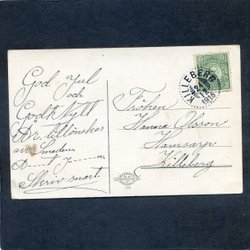 God Jul
och
Godt Nytt
År tillönskas
av Smeden
D
Skriv snart!
KILLEBERG
Fröken
Hanna Olsson
Hamsarp
Killeberg